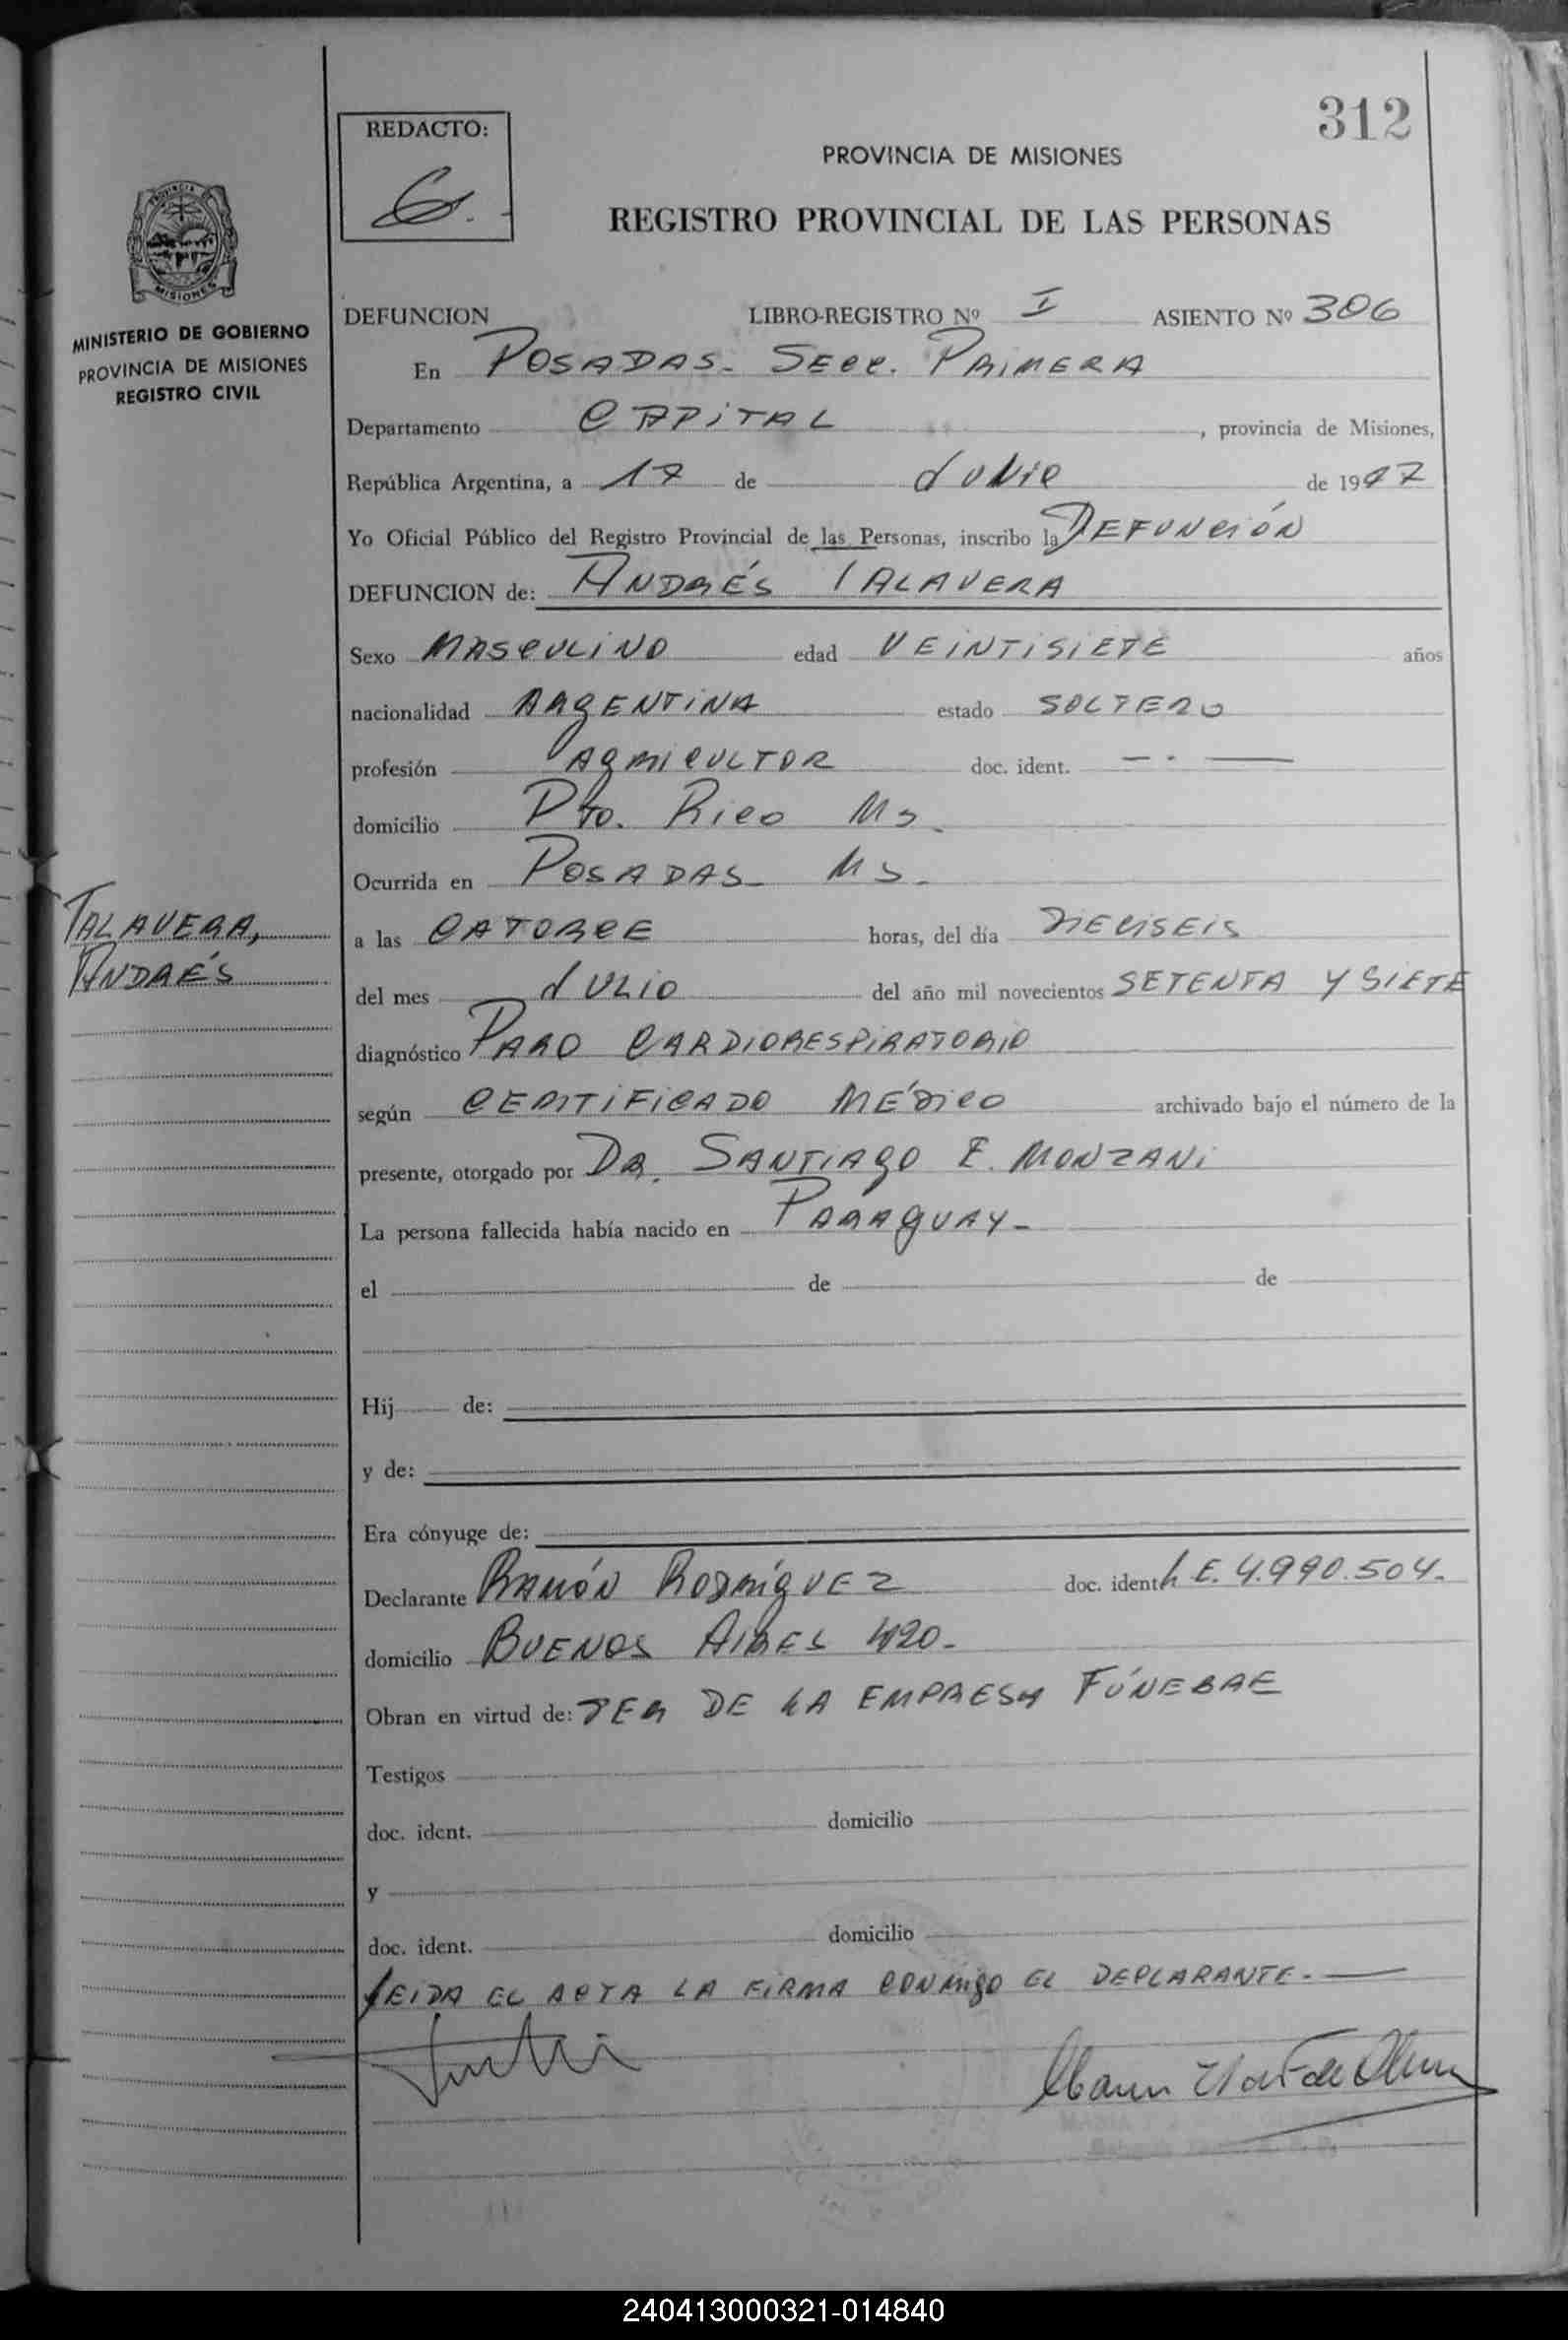 312
REDACTO:
G.
PROVINCIA DE MISIONES
REGISTRO PROVINCIAL DE LAS PERSONAS
PROVINCIA
MISIONES
MINISTERIO DE GOBIERNO
PROVINCIA DE MISIONES
REGISTRO CIVIL
DEFUNCION LIBRO-REGISTRO Nº I ASIENTO Nº 306
En POSADAS- SECC. PRIMERA
Departamento CAPITAL, provincia de Misiones,
República Argentina, a 17 de JULIO de 1977
Yo Oficial Público del Registro Provincial de las Personas, inscribo la DEFUNCIÓN
DEFUNCION de: ANDRÉS TALAVERA
Sexo MASCULINO edad VEINTISIETE años
nacionalidad ARGENTINA estado SOLTERO
profesión AGRICULTOR doc. ident. — . —
domicilio Pto. Rico Ms.
Ocurrida en POSADAS- Ms.
TALAVERA,
ANDRÉS
a las CATORCE horas, del día DIECISEIS
del mes JULIO del año mil novecientos SETENTA Y SIETE
diagnóstico PARO CARDIORESPIRATORIO
según CERTIFICADO MÉDICO archivado bajo el número de la
presente, otorgado por DR. SANTIAGO E. MONZANI
La persona fallecida había nacido en PARAGUAY-
el de de
Hij de:
y de:
Era cónyuge de:
Declarante RAMÓN RODRÍGUEZ doc. ident. L.E. 4.990.504.
domicilio BUENOS AIRES 420-
Obran en virtud de: SER DE LA EMPRESA FÚNEBRE
Testigos
doc. ident. domicilio
y
doc. ident. domicilio
LEIDA EL ACTA LA FIRMA CONMIGO EL DECLARANTE.—
240413000321-014840